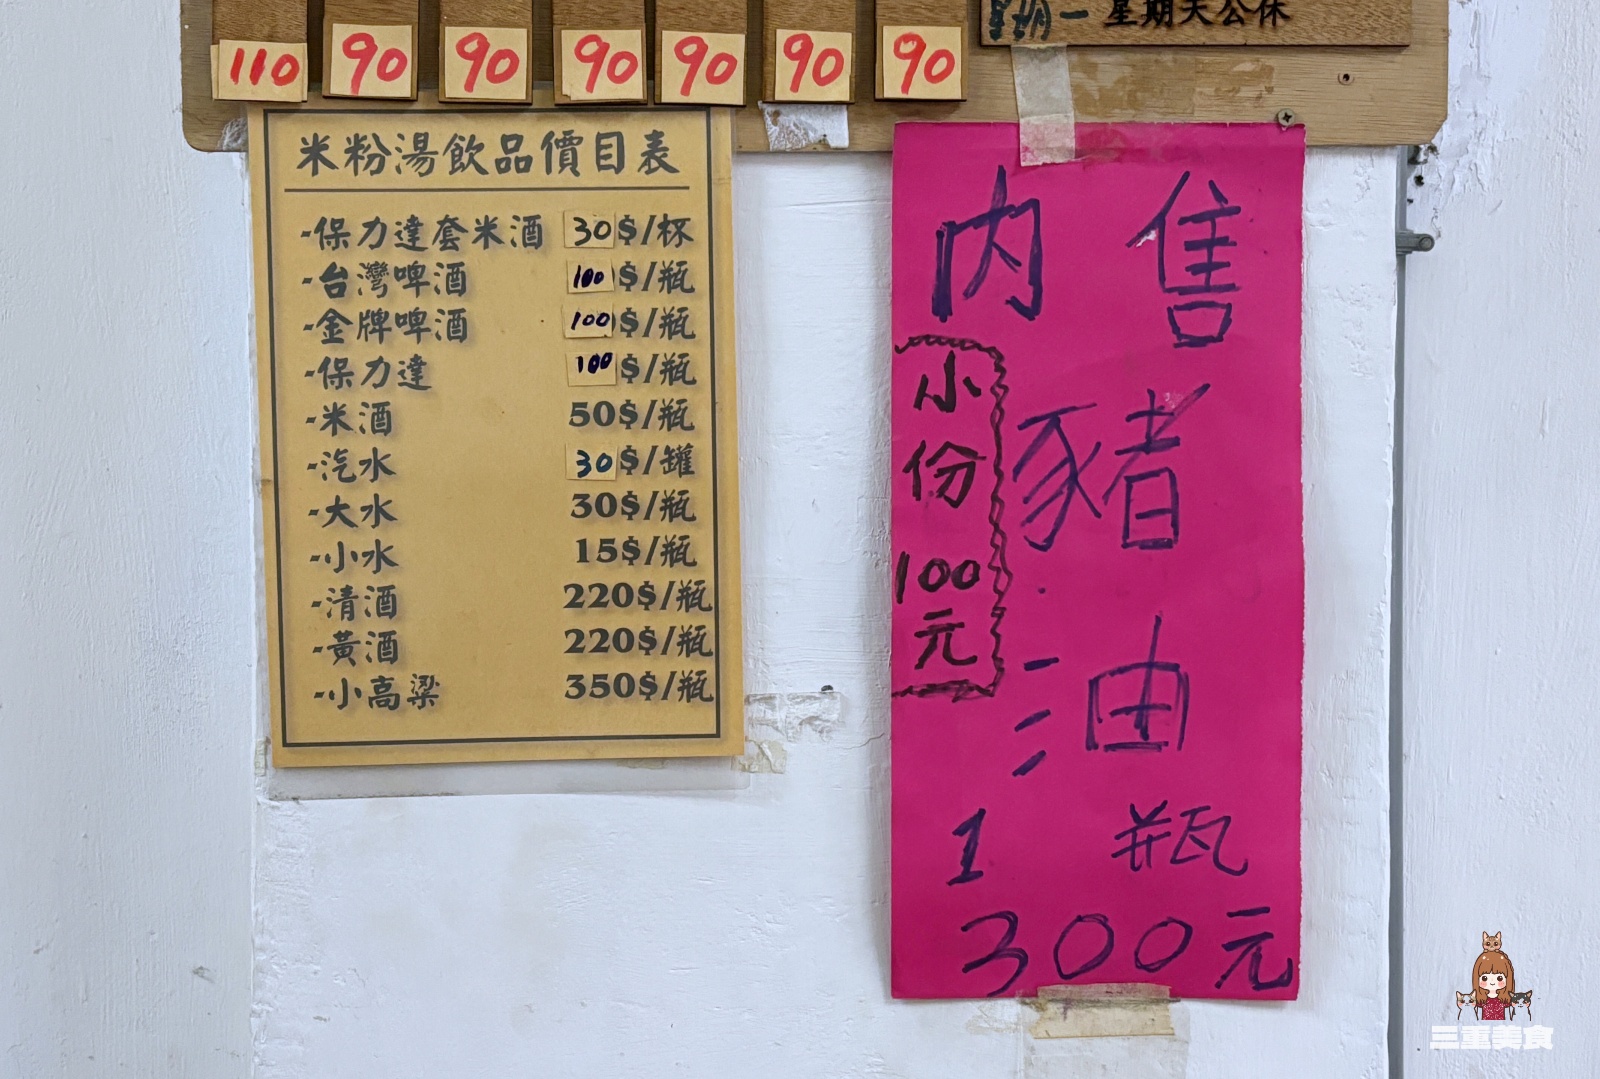 110 90 90 90 90 90 90
星期一 星期天公休
米粉湯飲品價目表
-保力達套米酒 30$/杯
-台灣啤酒 100$/瓶
-金牌啤酒 100$/瓶
-保力達 100$/瓶
-米酒 50$/瓶
-汽水 30$/罐
-大水 30$/瓶
-小水 15$/瓶
-清酒 220$/瓶
-黃酒 220$/瓶
-小高粱 350$/瓶
內售
豬
油
1瓶
300元
小份100元
三重美食